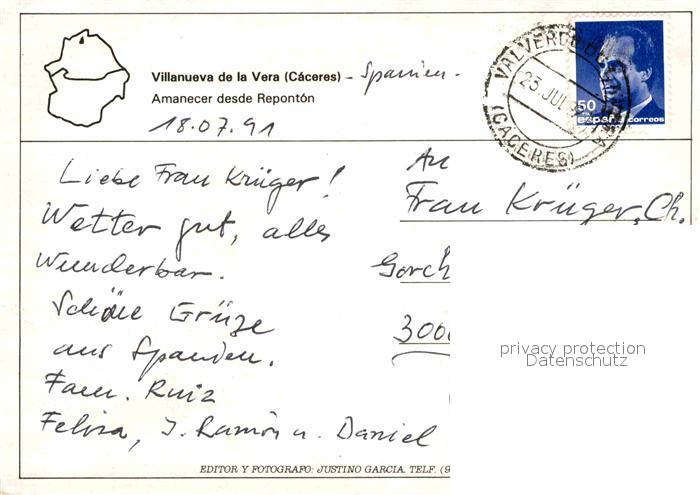 Villanueva de la Vera (Cáceres) - Spanien.
Amanecer desde Repontón
18.07.91
50
españa correos
VALVERDE
25.JUL
(CACERES)
Liebe Frau Krüger!
Wetter gut, alles
Wunderbar.
Schöne Grüze
aus Spanien.
Fam. Ruiz
Felisa, J. Ramón u. Daniel
An
Frau Krüger, Ch.
Gorch
300
privacy protection
Datenschutz
EDITOR Y FOTOGRAFO: JUSTINO GARCIA. TELF. (9